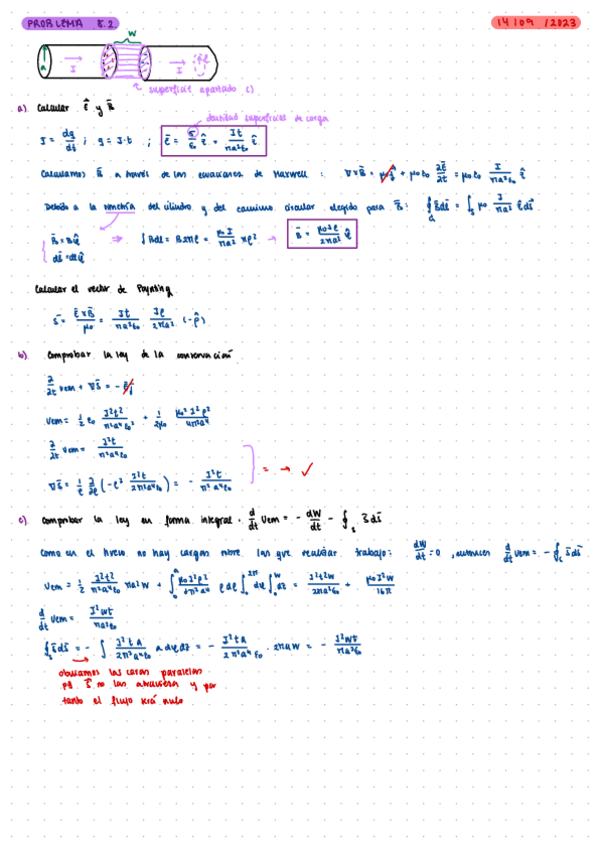 PROBLEMA 8.2.
14 | 09 / 2023
w
a
I
I
superficie apartado c)
a) Calcular E⃗ y B⃗
densidad superficial de carga
I = dq/dt ; q = I·t ; E⃗ = σ/ε₀ ẑ = It/πa²ε₀ ẑ
Calculamos B⃗ a través de las ecuaciones de Maxwell : ∇×B⃗ = μ₀J⃗ + μ₀ε₀ ∂E⃗/∂t = μ₀ε₀ I/πa²ε₀ ẑ
Debido a la simetría del cilindro y del camino circular elegido para B⃗ : ∮ B⃗dl⃗ = ∫ₛ μ₀ I/πa² ẑ ds⃗
B⃗ = Bφ̂
dl⃗ = dlφ̂
⇒ ∫Bdl = B2πρ = μ₀I/πa² πρ² → B⃗ = μ₀Iρ/2πa² φ̂
Calcular el vector de Poynting
S⃗ = E⃗×B⃗/μ₀ = It/πa²ε₀ Iρ/2πa² (-ρ̂)
b) Comprobar la ley de la conservación
∂/∂t uem + ∇S⃗ = - E⃗J⃗
uem = 1/2 ε₀ I²t²/π²a⁴ε₀² + 1/2μ₀ μ₀²I²ρ²/4π²a⁴
∂/∂t uem = I²t/π²a⁴ε₀
∇S⃗ = 1/ρ ∂/∂ρ (-ρ² I²t/2π²a⁴ε₀) = - I²t/π²a⁴ε₀
= → ✓
c) Comprobar la ley en forma integral. d/dt Uem = - dW/dt - ∮ₛ S⃗ds⃗
Como en el hueco no hay cargas sobre las que realizar trabajo: dW/dt = 0 , entonces d/dt Uem = - ∮ₛ S⃗ds⃗
Uem = 1/2 I²t²/π²a⁴ε₀ πa²w + ∫₀ᵃ μ₀I²ρ²/8π²a⁴ ρdρ ∫₀²π dφ ∫₀ʷ dz = I²t²w/2πa²ε₀ + μ₀I²w/16π
d/dt Uem = I²wt/πa²ε₀
∮ₛ S⃗ds⃗ = - ∫ I²ta/2π²a⁴ε₀ a dφdz = - I²ta/2π²a⁴ε₀ · 2πaw = - I²wt/πa²ε₀
obviamos las caras paralelas
pq S⃗ no las atraviesa y por
tanto el flujo será nulo